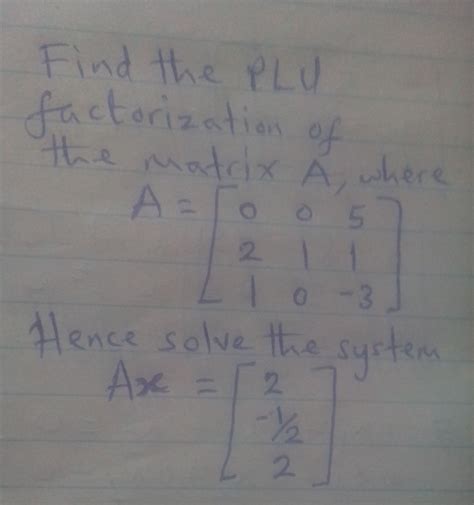 Find the PLU
factorization of
the matrix A, where
A = [ 0 0 5
2 1 1
1 0 -3 ]
Hence solve the system
Ax = [ 2
-1/2
2 ]